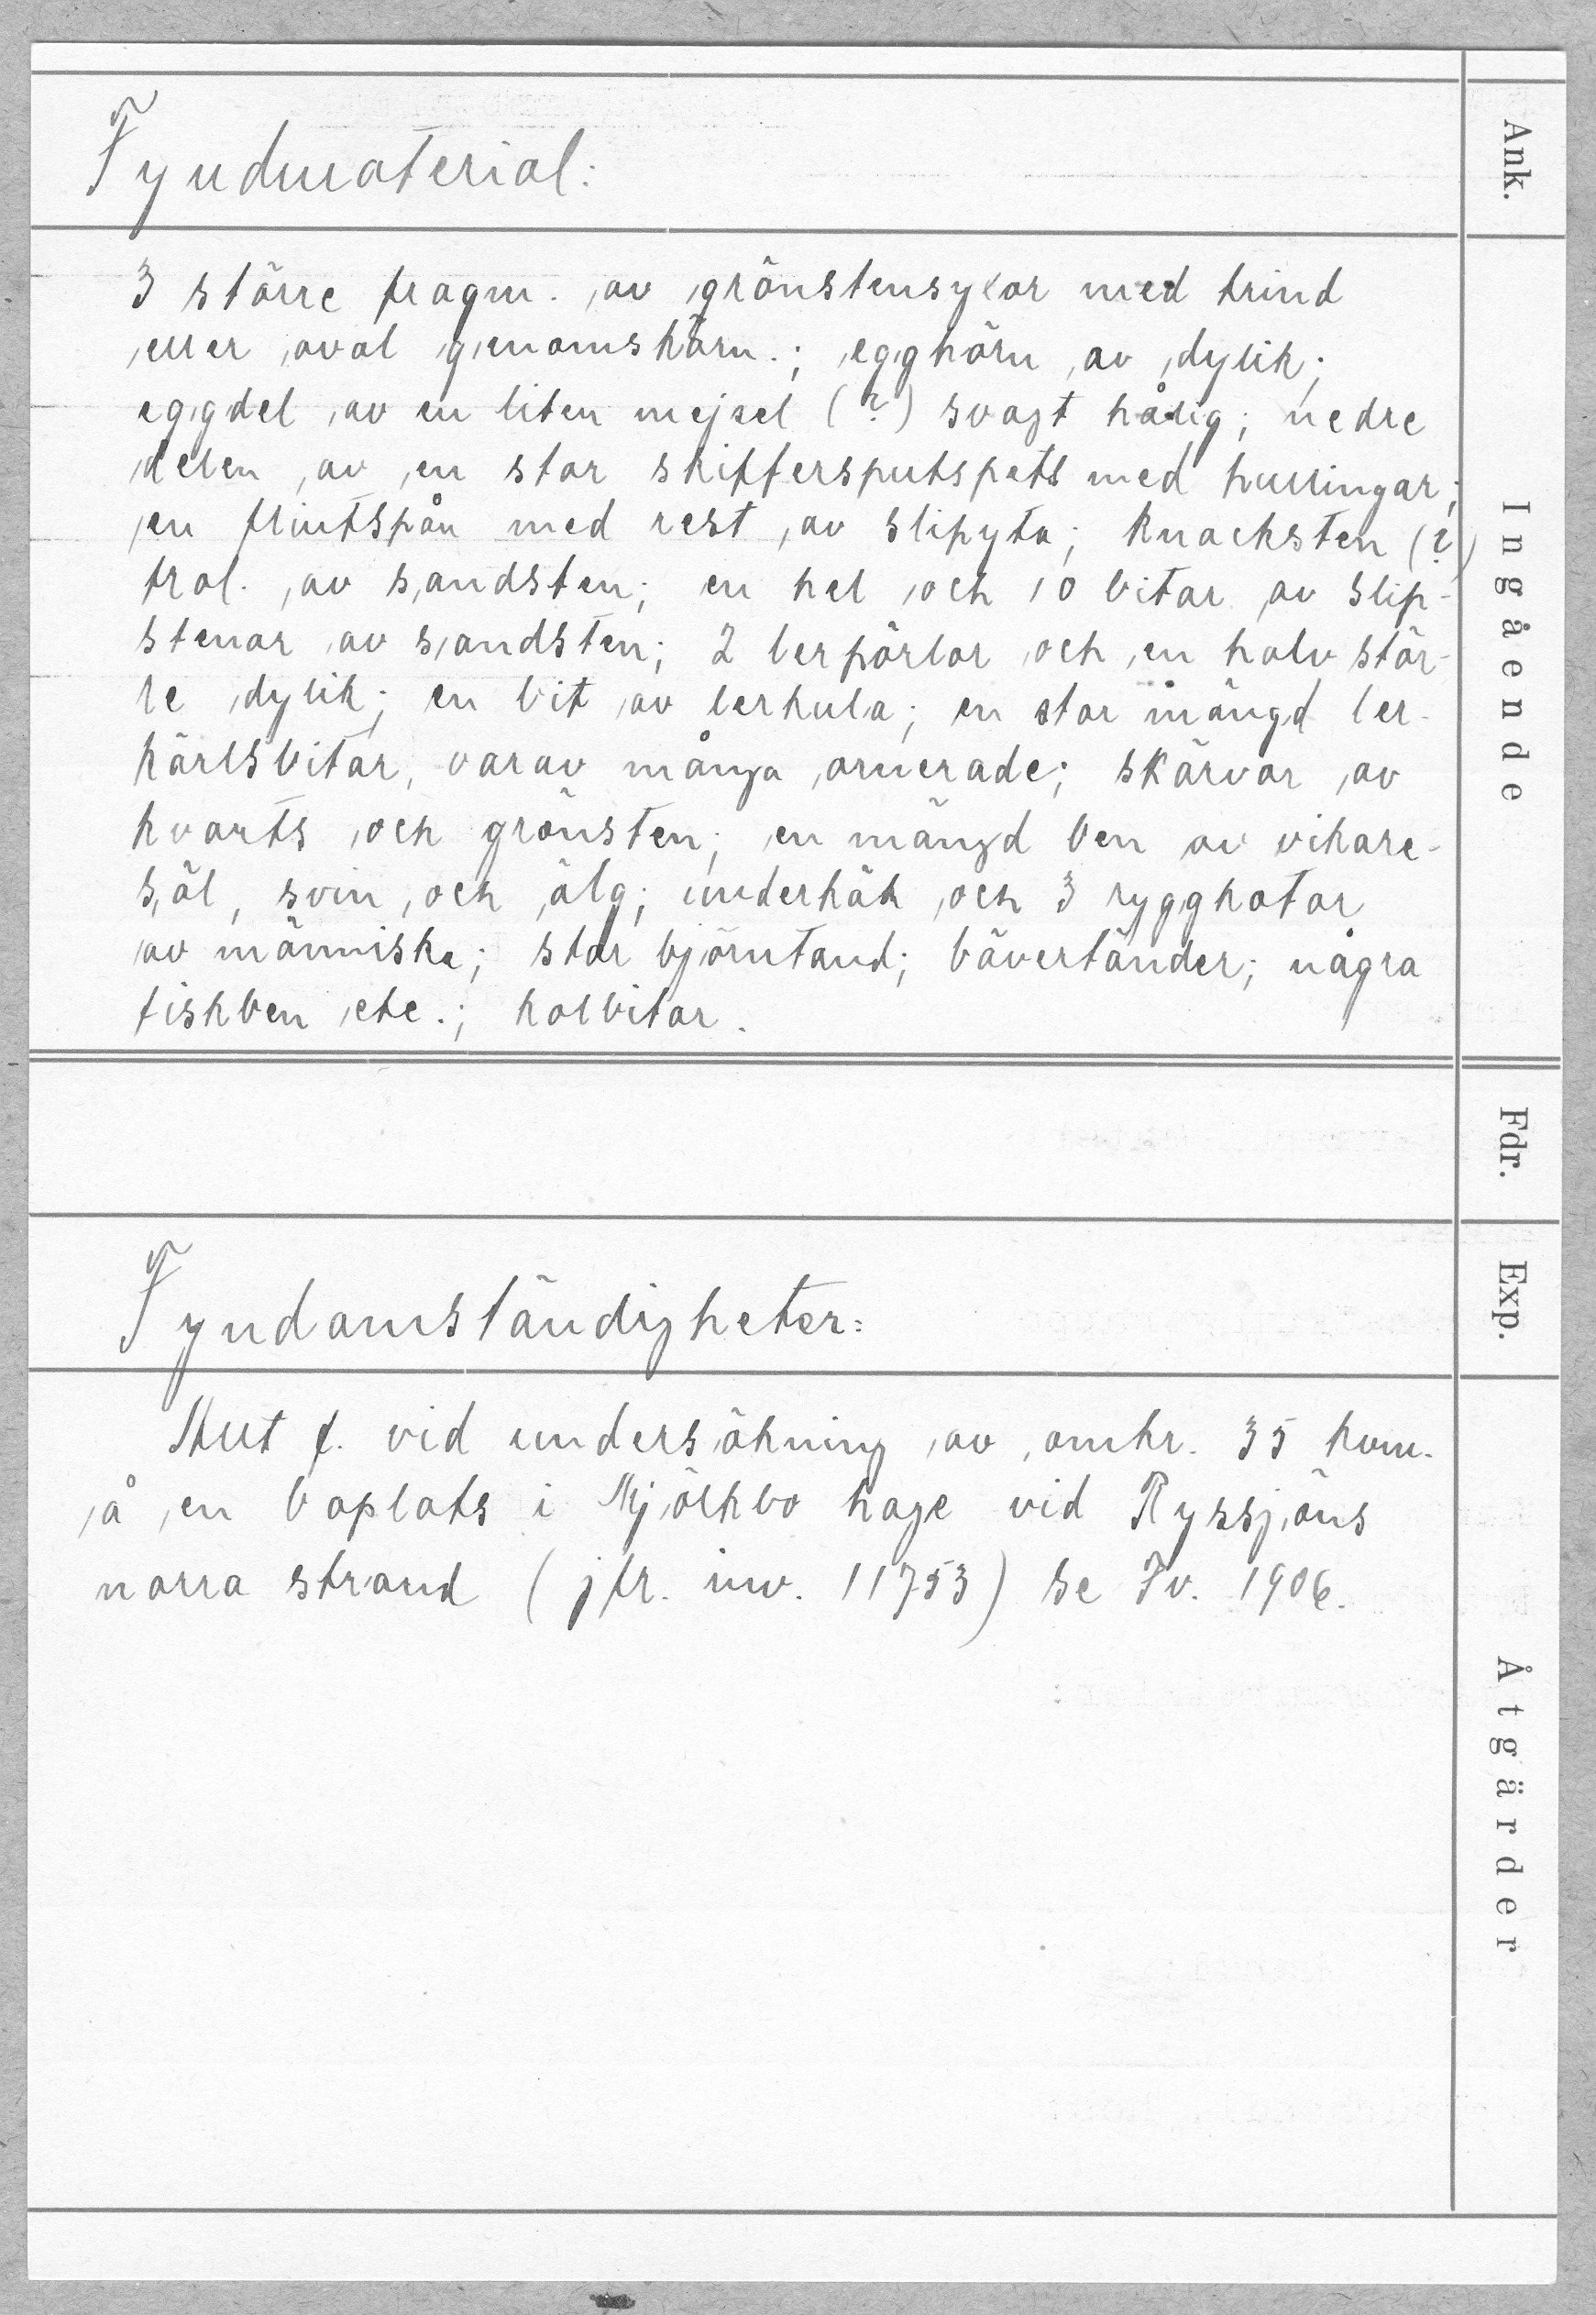 Fyndmaterial:
3 större fragm. av grönstensyxor med trind
eller oval genomskärn.; egghörn av dylik;
eggdel av en liten mejsel (?) svagt hålig; nedre
delen av en stor skifferspjutspets med hullingar;
en flintspån med rest av slipyta; knacksten (?)
trol. av sandsten; en hel och 10 bitar av slip-
stenar av sandsten; 2 lerpärlor och en halv stör-
re dylik; en bit av lerkula; en stor mängd ler-
kärlsbitar, varav många ornerade; skärvor av
kvarts och grönsten; en mängd ben av vikare-
säl, svin och älg; underkäk och 3 ryggkotor
av människa; stor björntand; bävertänder; några
fiskben etc.; kolbitar.
Fyndomständigheter:
Allt f. vid undersökning av omkr. 35 kvm.
å en boplats i Mjölkbo hage vid Ryssjöns
norra strand (jfr. inv. 11753) se Fv. 1906.
Ank.
Ingående
Fdr.
Exp.
Åtgärder